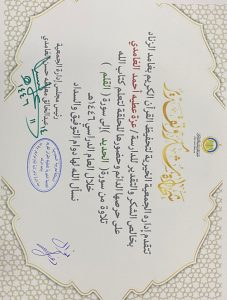 شهادة شكر وتقدير
تتقدم إدارة الجمعية الخيرية لتحفيظ القرآن الكريم بغامد الزناد
بخالص الشكر والتقدير للدارسة / عزة عطيه احمد الغامدي
على حرصها الدائم وحضورها للحلقة لتعلم كتاب الله
تلاوة من سورة ( الحديد ) إلى سورة ( القلم )
خلال العام الدراسي ١٤٤٦هـ
نسأل الله لها دوام التوفيق والسداد
رئيس مجلس إدارة الجمعية
عبدالخالق معاضه حسن الغامدي